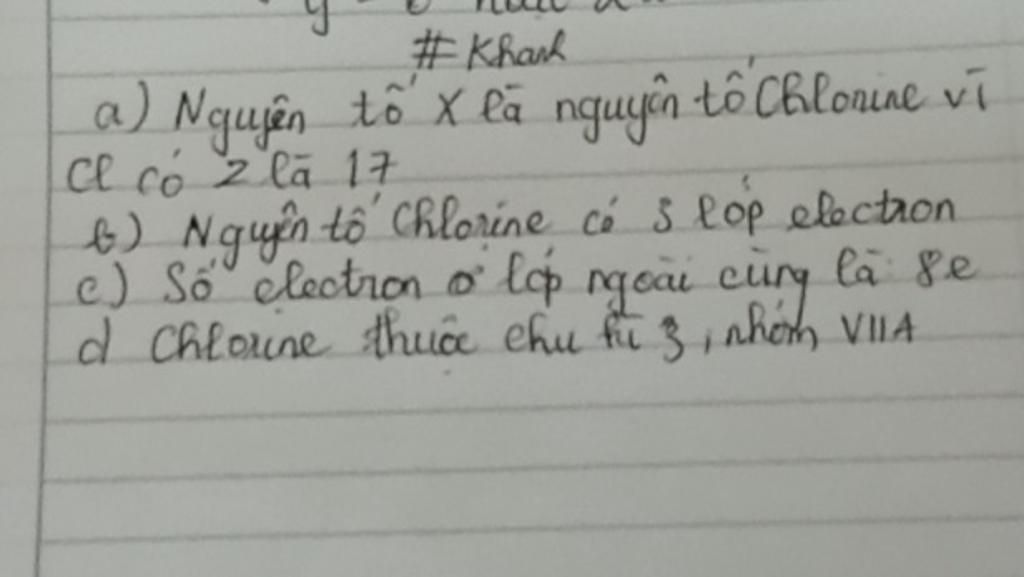 # Khanh
a) Nguyên tố X là nguyên tố Chlorine vì
Cl có Z là 17
b) Nguyên tố Chlorine có 3 lớp electron
c) Số electron ở lớp ngoài cùng là 8e
d Chlorine thuộc chu kì 3, nhóm VIIA